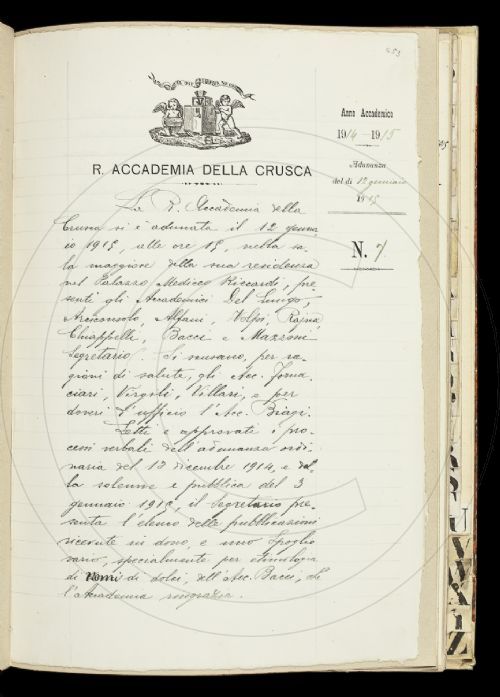 453
R. ACCADEMIA DELLA CRUSCA
Anno Accademico
1914-1915
Adunanza
del dì 12 gennaio
1915
N. 7.
La R. Accademia della
Crusca si è adunata il 12 genna-
io 1915, alle ore 15, nella sa-
la maggiore della sua residenza
nel Palazzo Mediceo Riccardi, pre-
senti gli Accademici Del Lungo,
Arciconsolo, Alfani, Volpi, Rajna,
Chiappelli, Bacci e Mazzoni
Segretario. Si scusano, per ra-
gioni di salute, gli Acc. Torna-
ciari, Virgili, Villari, e per
doveri d'ufficio l'Acc. Biagi.
Letti e approvati i pro-
cessi verbali dell'adunanza ordi-
naria del 13 dicembre 1914, e del-
la solenne e pubblica del 3
gennaio 1915, il Segretario pre-
senta l'elenco delle pubblicazioni
ricevute in dono, e uno spoglio
vario, specialmente per etimologia
di nomi di dolci, dell'Acc. Bacci, che
l'Accademia ringrazia.